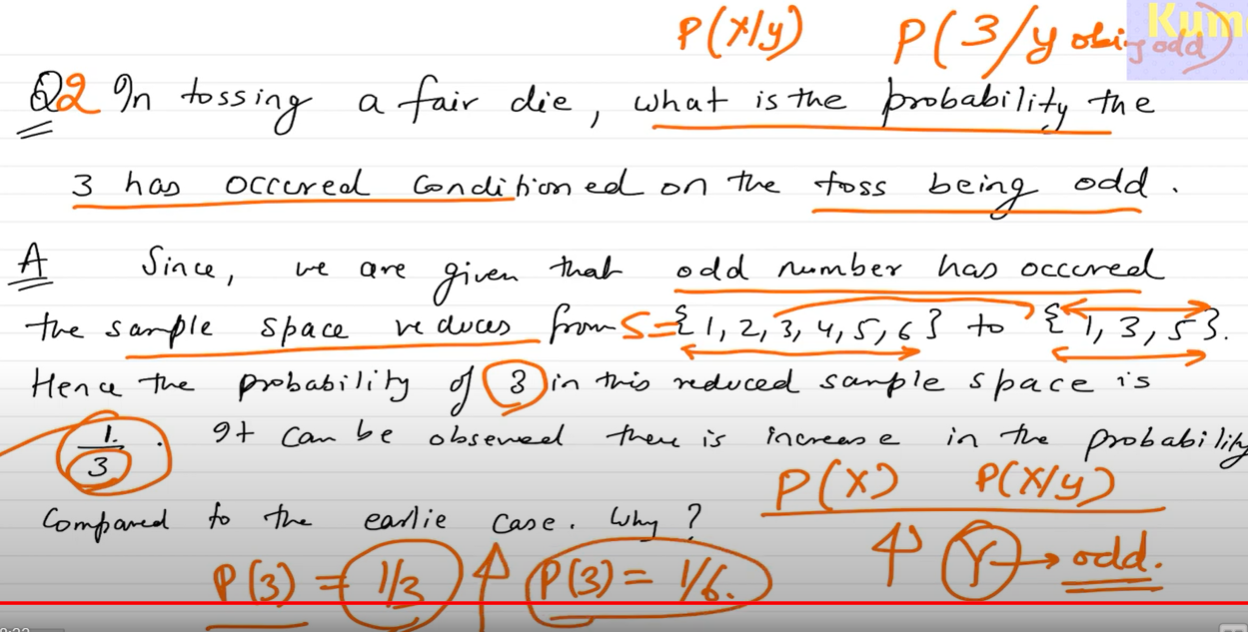 P(x/y) P(3/y being odd)
Kum
Q2 In tossing a fair die, what is the probability the
3 has occured conditioned on the toss being odd.
A Since, we are given that odd number has occured
the sample space reduces from S={1,2,3,4,5,6} to {1,3,5}.
Hence the probability of 3 in this reduced sample space is
1/3. It can be observed there is increase in the probability
Compared to the earlie case. Why?
P(X) P(X/y)
P(3) = 1/3 ↑ P(3) = 1/6. ↑ Y → odd.